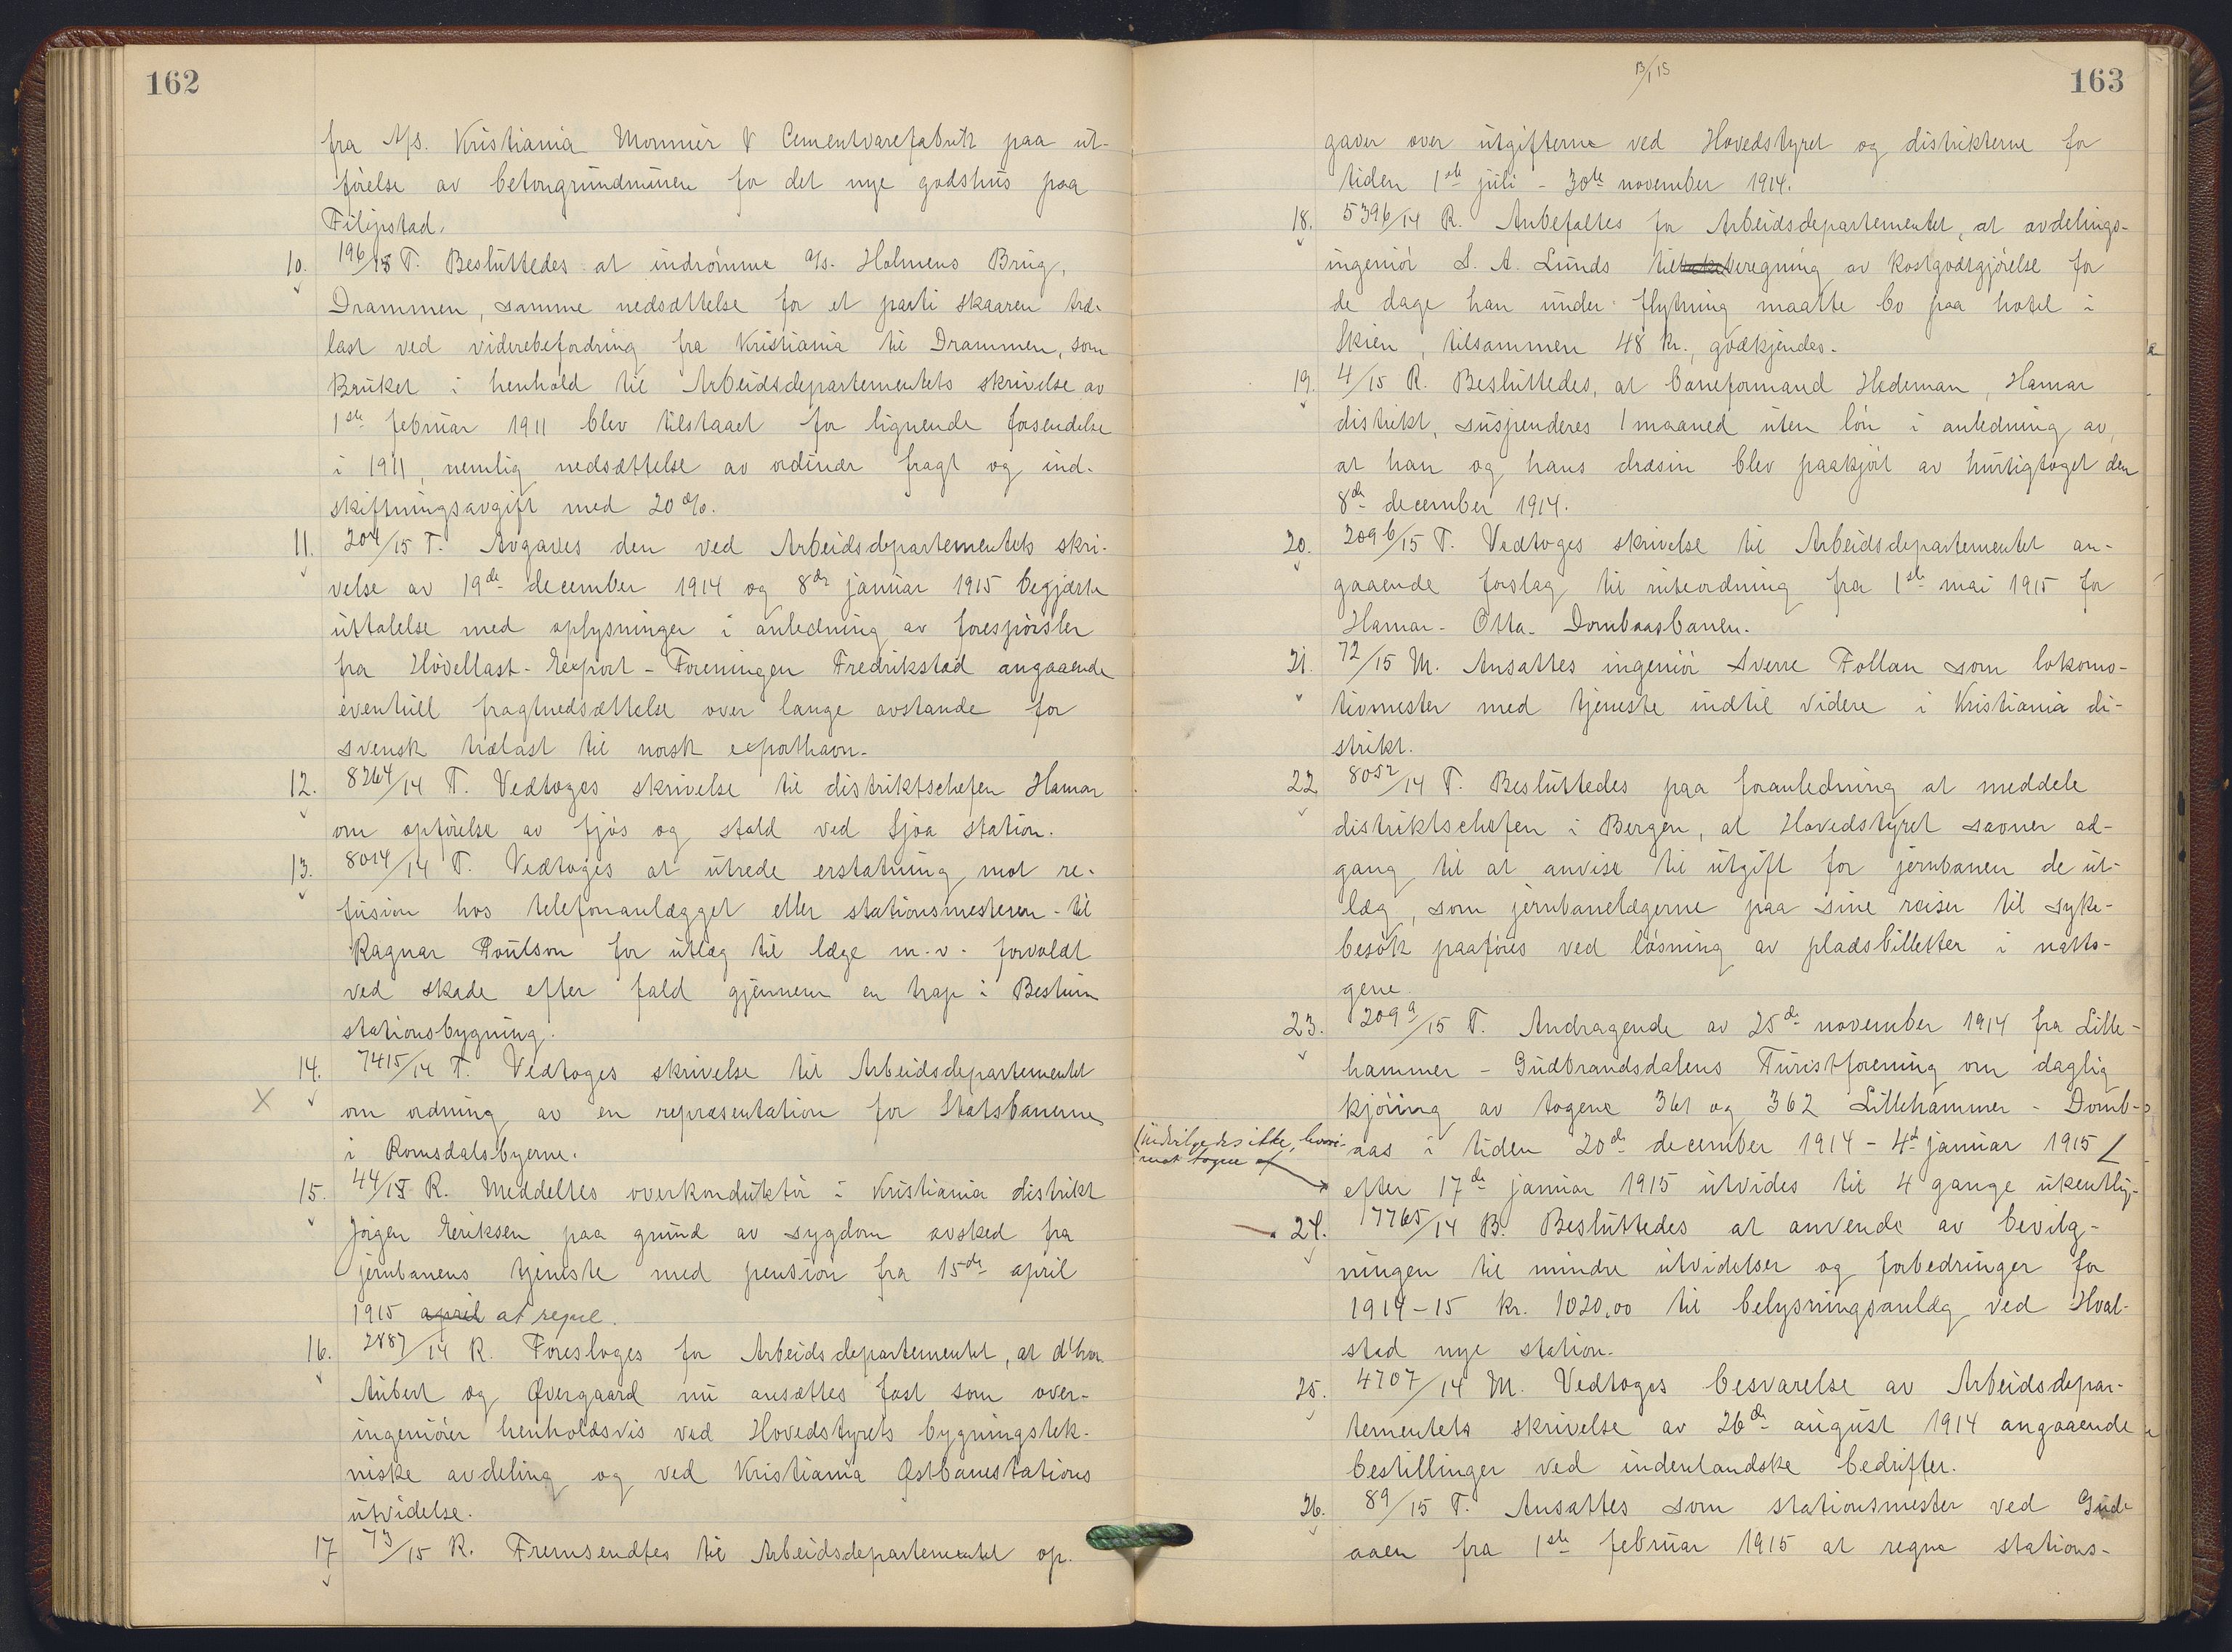 162
fra A/S. Kristiania Monnier & Cementvarefabrik paa ut-
förelse av betongrundmuren for det nye godshus paa
Filipstad.
10. 196/15 T. Besluttedes at indrömme A/s. Holmens Brug,
Drammen, samme nedsættelse for et parti skaaren træ-
last ved viderebefordring fra Kristiania til Drammen, som
Bruket i henhold til Arbeidsdepartementets skrivelse av
1ste februar 1911 blev tilstaaet for lignende forsendelse
i 1911, nemlig nedsættelse av ordinær fragt og ind-
skiftningsavgift med 20%.
11. 204/15 T. Avgaves den ved Arbeidsdepartementets skri-
velse av 19de december 1914 og 8de januar 1915 begjærte
uttalelse med oplysninger i anledning av forespörsler
fra Hövellast-Export-Foreningen Fredrikstad angaaende
eventuell fragtnedsættelse over lange avstande for
svensk trælast til norsk exporthavn.
12. 8264/14 T. Vedtoges skrivelse til distriktschefen Hamar
om opförelse av fjös og stald ved Sjoa station.
13. 8014/14 T. Vedtoges at utrede erstatning mot re-
fusion hos telefonanlægget eller stationsmesteren - til
Ragnar Poulson for utlæg til læge m.v. forvoldt
ved skade efter fald gjennem en trap i Bestum
stationsbygning.
14. 7415/14 T. Vedtoges skrivelse til Arbeidsdepartementet
X om ordning av en repræsentation for Statsbanerne
i Romsdalsbyerne.
15. 44/15 R. Meddeltes overkonduktör i Kristiania distrikt
Jörgen Eriksen paa grund av sygdom avsked fra
jernbanens tjeneste med pension fra 15de april
1915 april at regne.
16. 2887/14 R. Foresloges for Arbeidsdepartementet, at d'hrr.
Aubert og Øvergaard nu ansættes fast som over-
ingeniörer henholdsvis ved Hovedstyrets bygningstek-
niske avdeling og ved Kristiania Østbanestations
utvidelse.
17 73/15 R. Fremsendtes til Arbeidsdepartementet op-
13/1 15
163
gaver over utgifterne ved Hovedstyret og distrikterne for
tiden 1ste juli - 30te november 1914.
18. 5396/14 R. Anbefaltes for Arbeidsdepartementet, at avdelings-
ingeniör S. A. Lunds beregning av kostgodtgjörelse for
de dage han under flytning maatte bo paa hotel i
Skien, tilsammen 48 kr., godkjendes.
19. 4/15 R. Besluttedes, at baneformand Hedeman, Hamar
distrikt, suspenderes 1 maaned uten lön i anledning av,
at han og hans dræsin blev paakjört av hurtigtoget den
8de december 1914.
20. 2096/15 T. Vedtoges skrivelse til Arbeidsdepartementet an-
gaaende forslag til ruteordning fra 1ste mai 1915 for
Hamar - Otta - Dombaasbanen.
21. 72/15 M. Ansattes ingeniör Sverre Follan som lokomo-
tivmester med tjeneste indtil videre i Kristiania di-
strikt.
22 8052/14 T. Besluttedes paa foranledning at meddele
distriktschefen i Bergen, at Hovedstyret savner ad-
gang til at anvise til utgift for jernbanen de ut-
læg, som jernbanelægerne paa sine reiser til syke-
besök paaföres ved lösning av pladsbilletter i natto-
gene.
23. 2099/15 T. Andragende av 25de november 1914 fra Lille-
hammer - Gudbrandsdalens Turistforening om daglig
kjöring av togene 361 og 362 Lillehammer - Domb-
aas i tiden 20de december 1914 - 4de januar 1915
(indvilgedes ikke, hvori-
mot togene
efter 17de januar 1915 utvides til 4 gange ukentlig.
24. 17765/14 B. Besluttedes at anvende av bevilg-
ningen til mindre utvidelser og forbedringer for
1914-15 kr. 1020,00 til belysningsanlæg ved Hval-
stad nye station.
25. 4707/14 M. Vedtoges besvarelse av Arbeidsdepar-
tementets skrivelse av 26de august 1914 angaaende
bestillinger ved indenlandske bedrifter.
26. 89/15 T. Ansattes som stationsmester ved Gud-
aaen fra 1ste februar 1915 at regne stations-